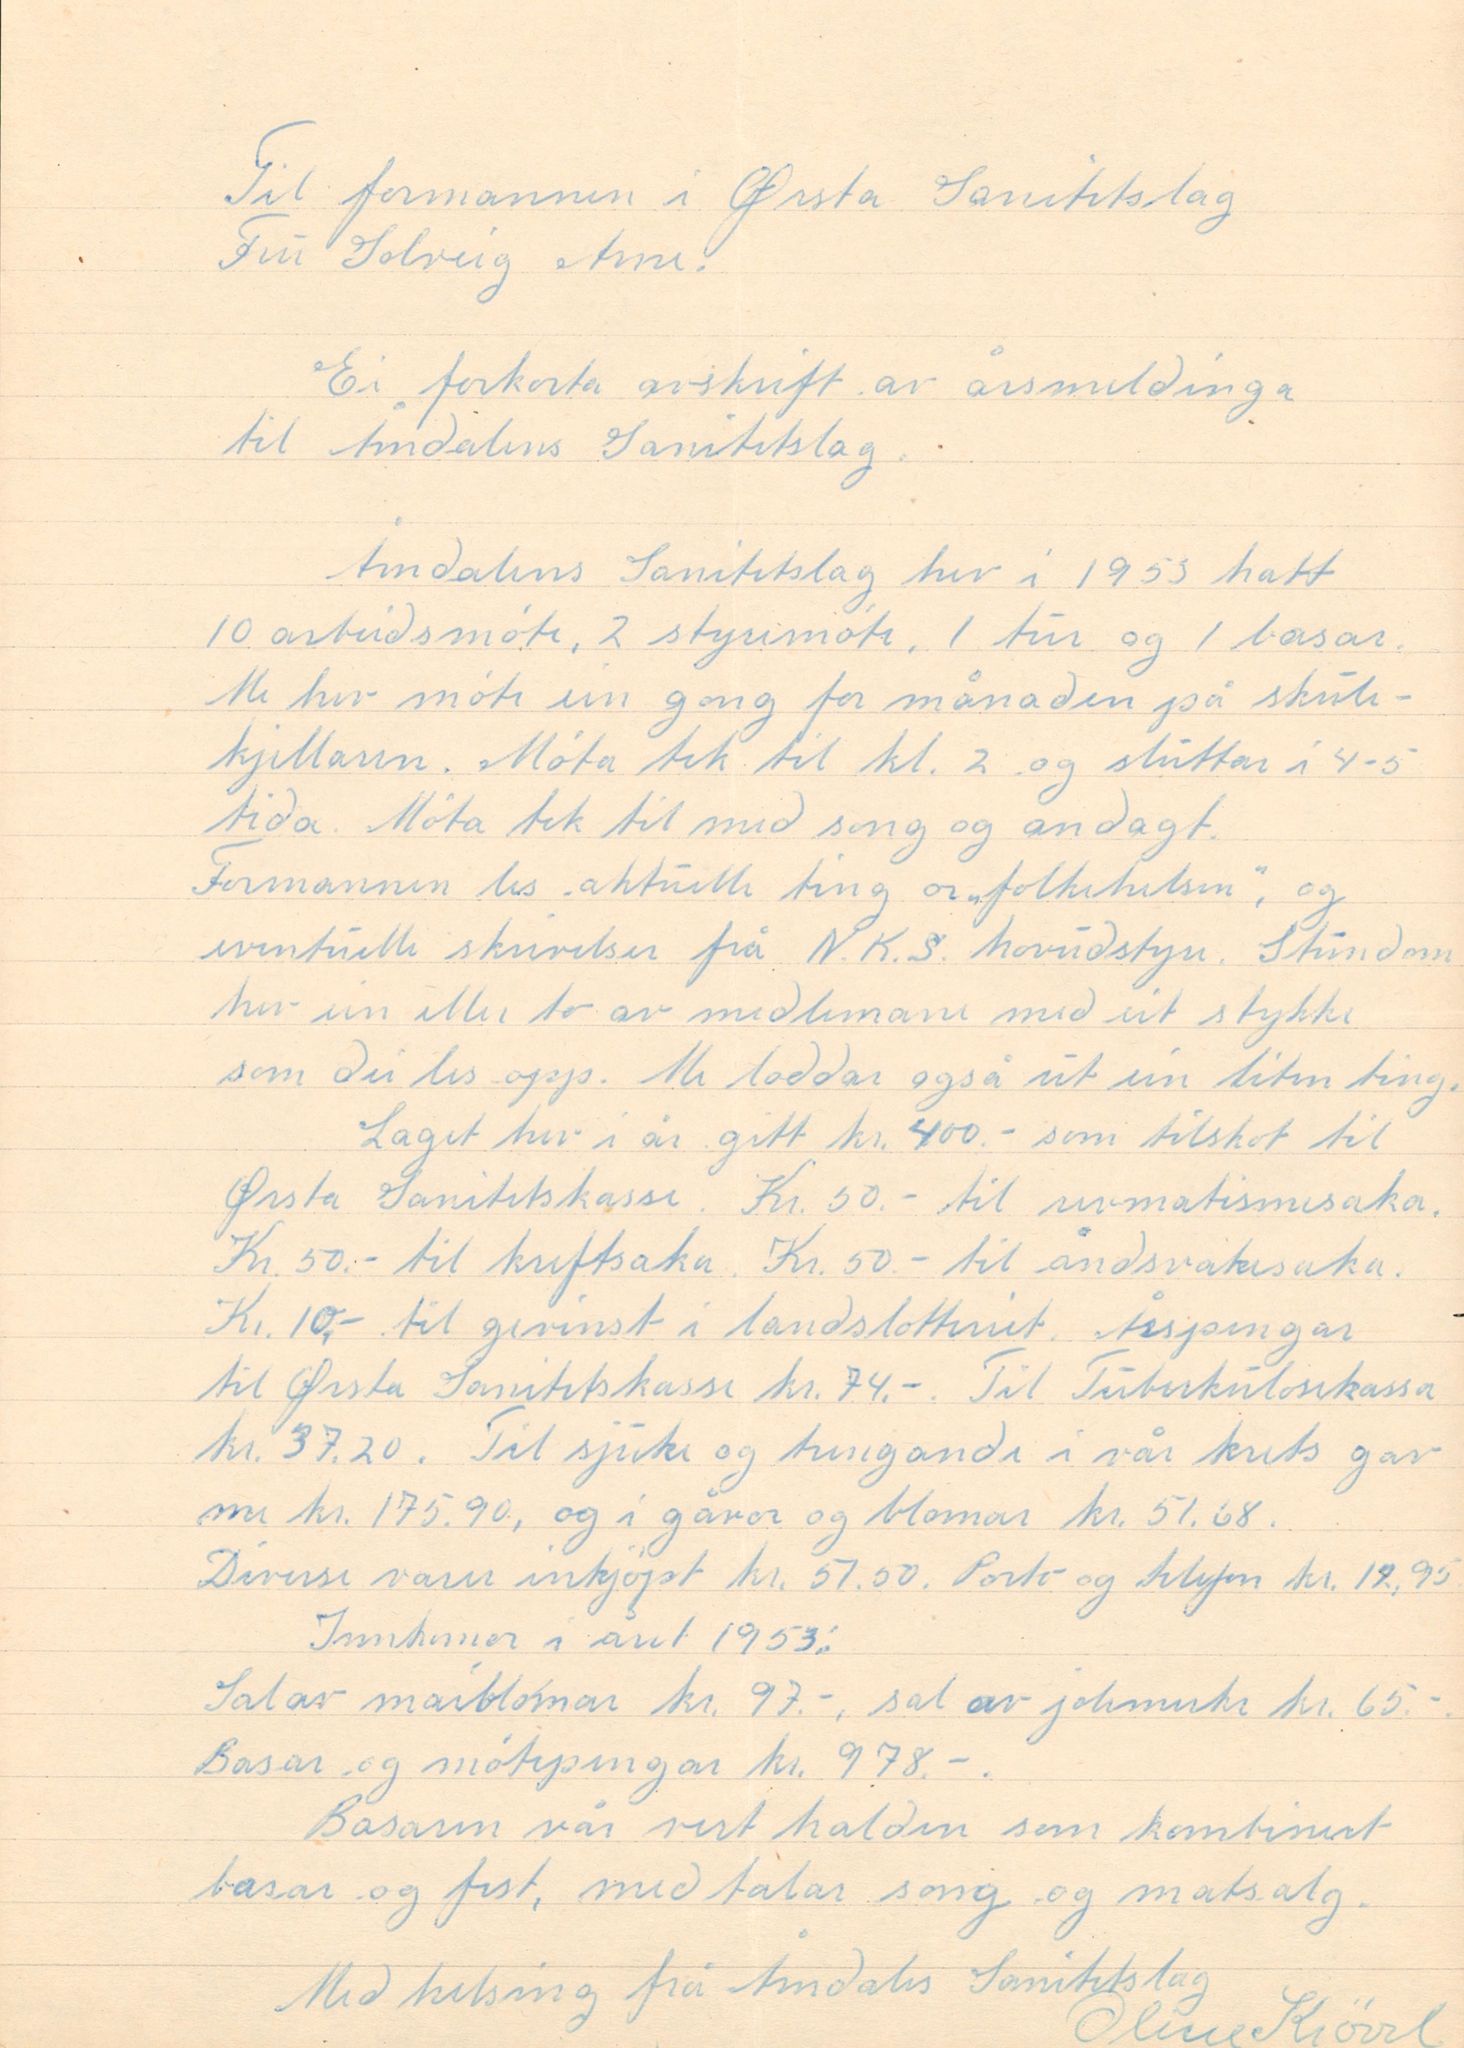 Til formannen i Ørsta Sanitetslag
Fru Solveig Ame.
Ei forkorta avskrift av årsmeldinga
til Åmdalens Sanitetslag.
Åmdalens Sanitetslag hev i 1953 hatt
10 arbeidsmóte, 2 styremóte, 1 tur og 1 basar.
Me hev móte ein gong for månaden på skule-
kjellaren. Móta tek til kl. 2 og sluttar i 4-5
tida. Móta tek til med song og andagt.
Formannen les aktuelle ting or „folkehelsen", og
eventuelle skrivelser frå N.K.S. hovudstyre. Stundom
hev ein eller to av medlemane med eit stykke
som dei les opp. Me loddar også ut ein liten ting.
Laget hev i år gitt kr. 400.- som tilskot til
Ørsta Sanitetskasse. Kr. 50.- til revmatismesaka.
Kr. 50.- til kreftsaka. Kr. 50.- til åndsvakesaka.
Kr. 10,- til gevinst i landslotteriet. Årspengar
til Ørsta Sanitetskasse kr. 74.-. Til Tuberkulosekassa
kr. 37.20. Til sjuke og trengande i vår krets gav
me kr. 175.90, og i gåvor og blomar kr. 51.68.
Diverse varer inkjöpt kr. 57.50. Porto og telefon kr. 12,95
Innkomor i året 1953:
Sal av maiblomar kr. 97.-, sal av jolemerke kr. 65.-.
Basar og mótepengar kr. 978.-.
Basaren vår vert halden som kombinert
basar og fest, med talar song og matsalg.
Med helsing frå Åmdals Sanitetslag
Oline Kjövl